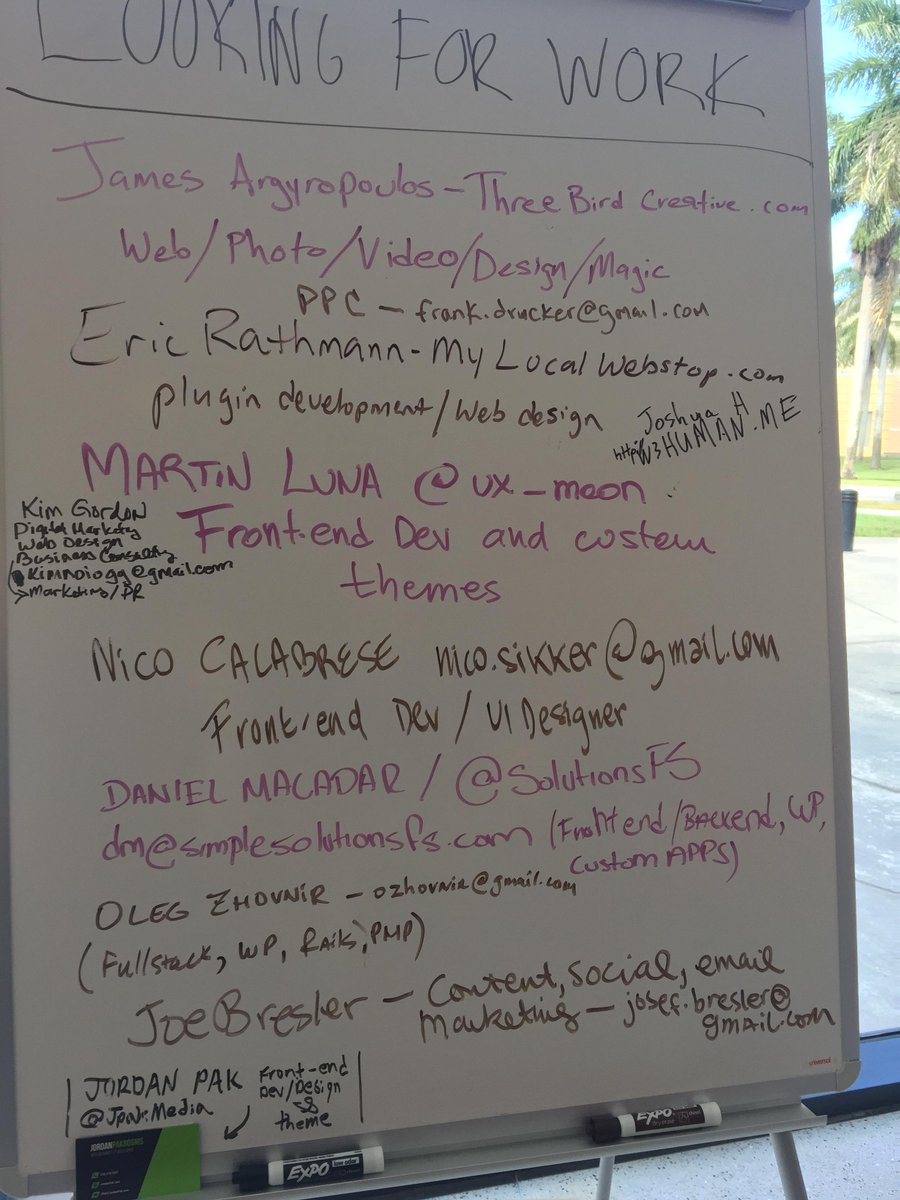 LOOKING FOR WORK
James Argyropoulos - Three Bird Creative.com
Web/Photo/Video/Design/Magic
PPC - frank.drucker@gmail.com
Eric Rathmann - My Local Webstop.com
plugin development/Web design
Joshua H
http://W3HUMAN.ME
MARTIN LUNA @ux_moon
Front-end Dev and custom
themes
Kim Gordon
Digital Marketing
Web Design
Business Consulting
@gmail.com
Marketing/PR
Nico CALABRESE nico.sikker@gmail.com
Front-end Dev / UI Designer
DANIEL MACADAR / @SolutionsFS
dm@simplesolutionsfs.com (Frontend/Backend, WP,
Custom APPS)
OLEG ZHOVNIR - ozhovnir@gmail.com
(Fullstack, WP, Rails, PMP)
Joe Bresler - Content, social, email
Marketing - josef.bresler@
gmail.com
JORDAN PAK
Front-end
Dev/Design
&
theme
JORDANPAKDESIGNS
EXPO low odor
EXPO
universal